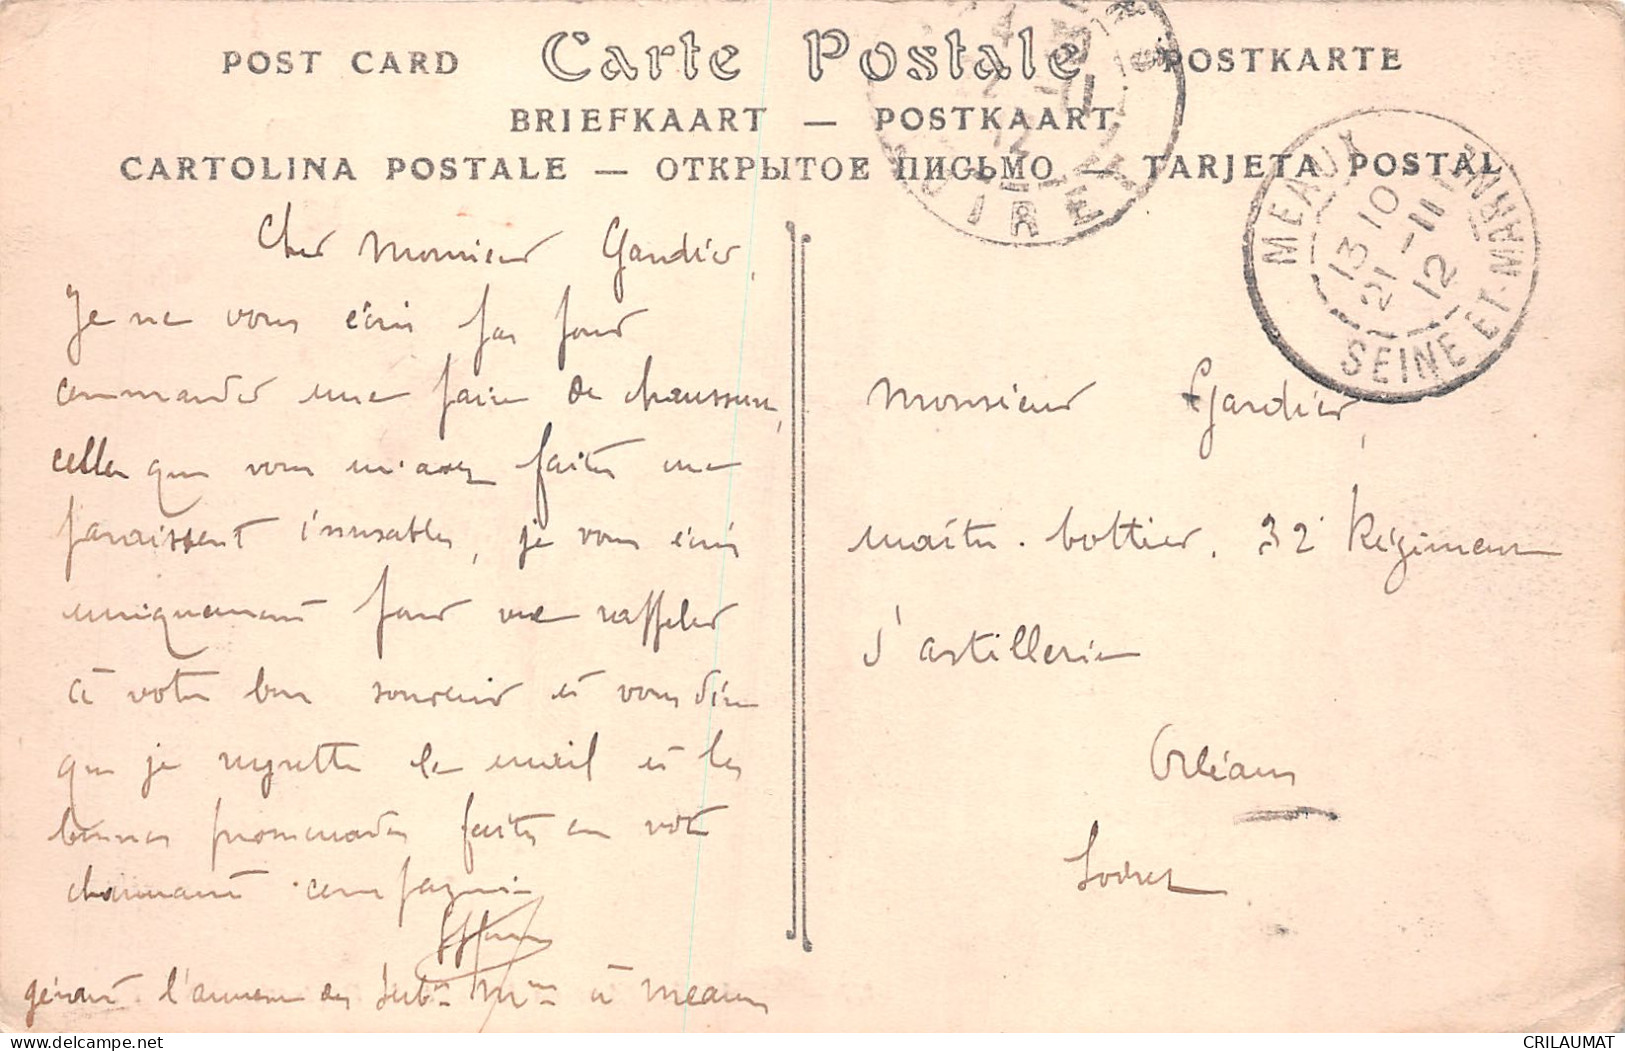 POST CARD Carte Postale POSTKARTE
BRIEFKAART — POSTKAART
CARTOLINA POSTALE — ОТКРЫТОЕ ПИСЬМО — TARJETA POSTAL
MEAUX
13 10
21 -11
12
SEINE ET-MARNE
Cher Monsieur Gardier,
Je ne vous écris pas pour
commander une paire de chaussures,
celles que vous m'avez faites me
paraissent inusables, je vous écris
uniquement pour me rappeler
à votre bon souvenir et vous dire
que je regrette le mail et les
bonnes promenades faites en votre
charmante compagnie
gérant l'annexe des Subces Mres à Meaux
Monsieur Gardier,
maître-bottier, 32e Régiment
d'artillerie
Orléans
Loiret
CRILAUMAT